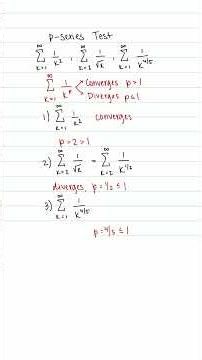 p-series Test
∞ ∑ k=1 1/k², ∞ ∑ k=2 1/√k, ∞ ∑ k=1 1/k^(4/5)
∞ ∑ k=1 1/k^p < Converges p > 1
Diverges p ≤ 1
1) ∞ ∑ k=1 1/k² converges
p = 2 > 1
2) ∞ ∑ k=2 1/√k = ∞ ∑ k=2 1/k^(1/2)
diverges, p = 1/2 ≤ 1
3) ∞ ∑ k=1 1/k^(4/5)
p = 4/5 ≤ 1